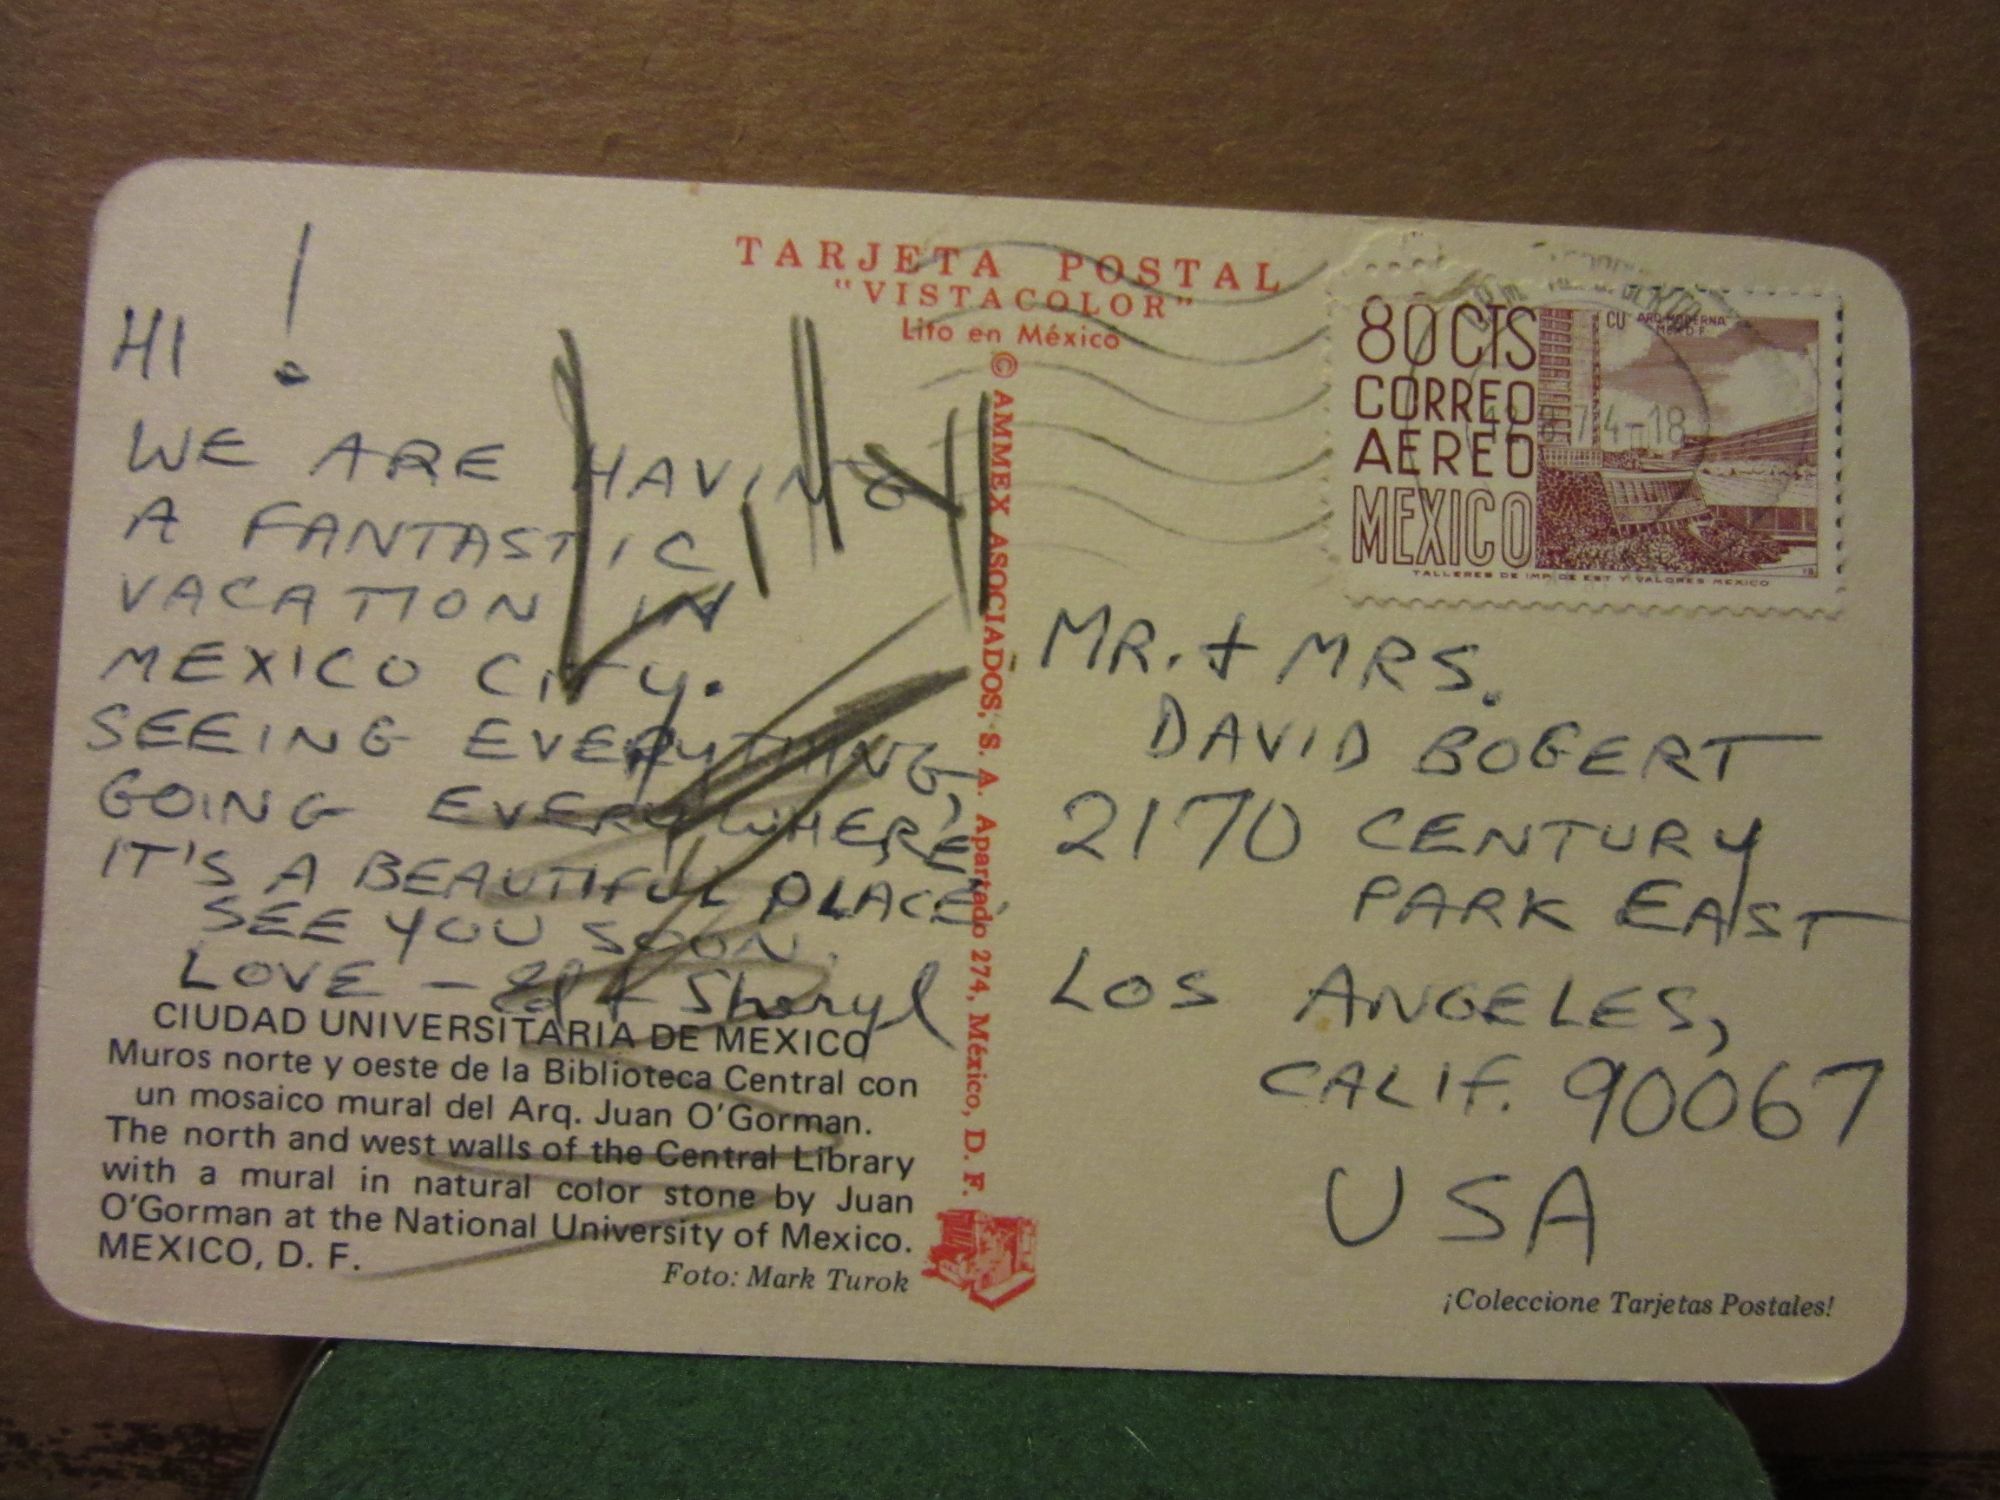 HI !
WE ARE HAVING
A FANTASTIC
VACATION IN
MEXICO CITY.
SEEING EVERYTHING,
GOING EVERYWHERE,
IT'S A BEAUTIFUL PLACE.
SEE YOU SOON.
LOVE - Ed + Sheryl
CIUDAD UNIVERSITARIA DE MEXICO
Muros norte y oeste de la Biblioteca Central con
un mosaico mural del Arq. Juan O'Gorman.
The north and west walls of the Central Library
with a mural in natural color stone by Juan
O'Gorman at the National University of Mexico.
MEXICO, D. F.
Foto: Mark Turok
TARJETA POSTAL
"VISTACOLOR"
Lito en México
© AMMEX ASOCIADOS, S. A. Apartado 274, México, D. F.
80 CTS
CORREO
AEREO
MEXICO
CU ARQ MODERNA
MEX D F
TALLERES DE IMP DE EST Y VALORES MEXICO
74-18
MR. + MRS.
DAVID BOGERT
2170 CENTURY
PARK EAST
LOS ANGELES,
CALIF. 90067
USA
¡Coleccione Tarjetas Postales!